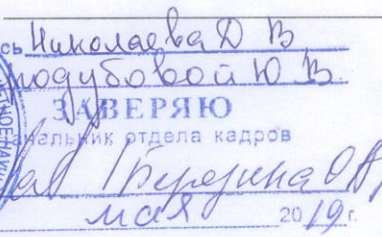 сь Николаева Д В
подубовой Ю В.
ЗАВЕРЯЮ
начальник отдела кадров
Березина О В
мая 2019 г.